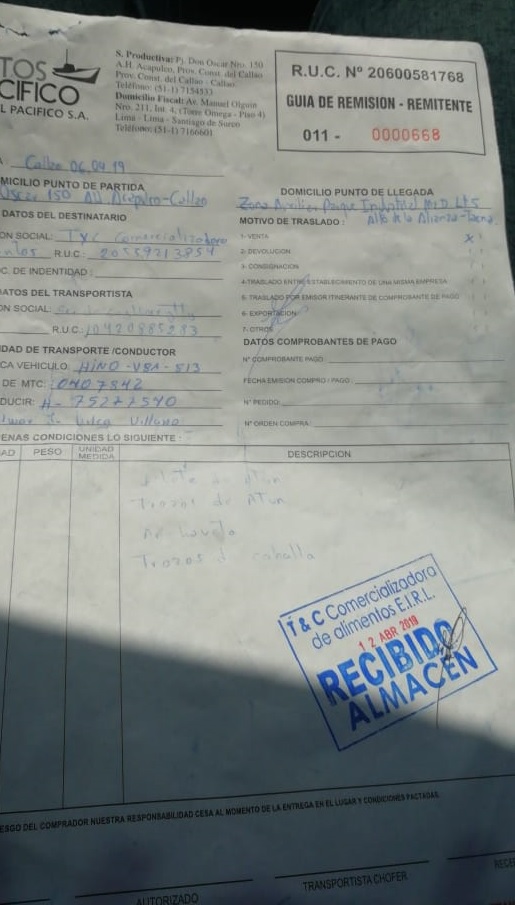 TOS
CIFICO
L PACIFICO S.A.
S. Productiva: Pj. Don Oscar Nro. 150
A.H. Acapulco, Prov. Const. del Callao
Prov. Const. del Callao - Callao.
Teléfono: (51-1) 7154533
Domicilio Fiscal: Av. Manuel Olguin
Nro. 211, Int. 4, (Torre Omega - Piso 4)
Lima - Lima - Santiago de Surco
Teléfono: (51-1) 7166601
R.U.C. Nº 20600581768
GUIA DE REMISION - REMITENTE
011 - 0000668
Callao 06.04.19
MICILIO PUNTO DE PARTIDA
Oscar 150 AH Acapulco-Callao
DOMICILIO PUNTO DE LLEGADA
Zona Parque Industrial Mz D Lt 5
Alto de la Alianza-Tacna
DATOS DEL DESTINATARIO
MOTIVO DE TRASLADO :
ON SOCIAL: TyC Comercializadora
R.U.C. 20559213854
C. DE INDENTIDAD :
1- VENTA X
2- DEVOLUCION
3- CONSIGNACION
4-TRASLADO ENTRE ESTABLECIMIENTO DE UNA MISMA EMPRESA
5- TRASLADO POR EMISOR ITINERANTE DE COMPROBANTE DE PAGO
6- EXPORTACION
7- OTROS
DATOS DEL TRANSPORTISTA
ON SOCIAL:
R.U.C: 10420885283
DATOS COMPROBANTES DE PAGO
IDAD DE TRANSPORTE /CONDUCTOR
CA VEHICULO: HINO-V5A-813
DE MTC: 0407842
DUCIR: H- 75277540
Villano
Nº COMPROBANTE PAGO:
FECHA EMISION COMPRO / PAGO :
Nº PEDIDO:
Nº ORDEN COMPRA:
ENAS CONDICIONES LO SIGUIENTE :
AD PESO UNIDAD MEDIDA DESCRIPCION
de Atun
Trozos de Atun
Anchoveta
Trozos d caballa
T & C Comercializadora
de alimentos E.I.R.L.
12 ABR 2019
RECIBIDO
ALMACÉN
ESGO DEL COMPRADOR NUESTRA RESPONSABILIDAD CESA AL MOMENTO DE LA ENTREGA EN EL LUGAR Y CONDICIONES PACTADAS.
AUTORIZADO
TRANSPORTISTA CHOFER
RECE